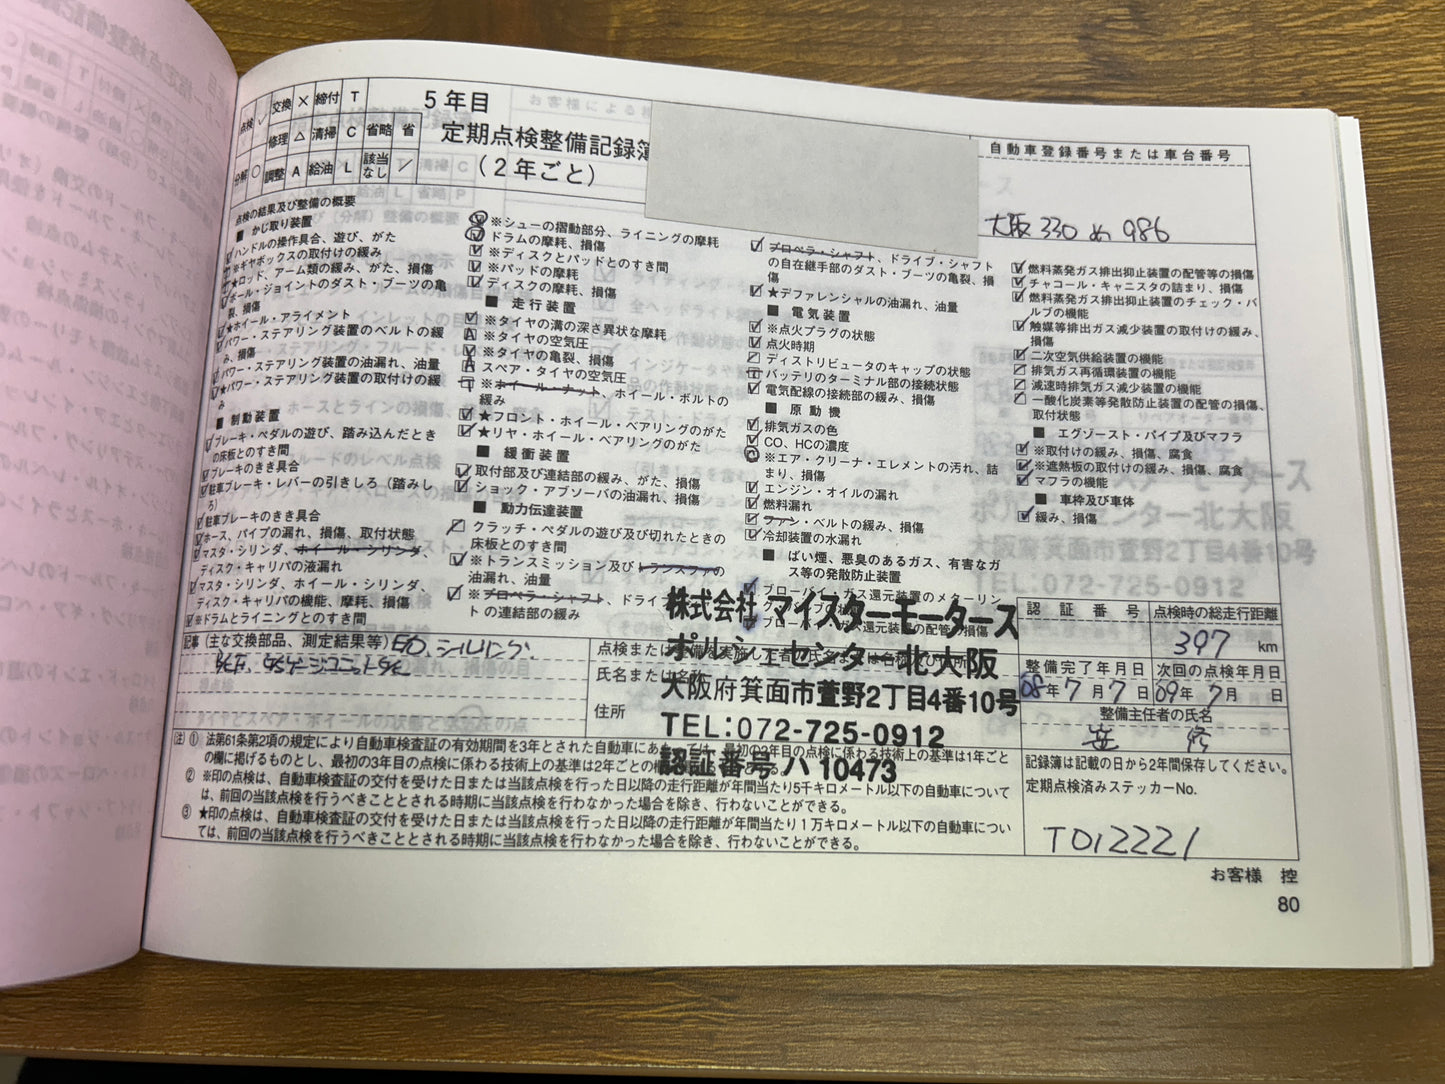 点検 ✓ 交換 × 締付 T
修理 △ 清掃 C 省略 省
分解 ○ 調整 A 給油 L 該当なし /
5年目
定期点検整備記録簿
(2年ごと)
自動車登録番号または車台番号
大阪 330 め 986
点検の結果及び整備の概要
■ かじ取り装置
ハンドルの操作具合、遊び、がた
※ギヤボックスの取付けの緩み
★ロッド、アーム類の緩み、がた、損傷
ボール・ジョイントのダスト・ブーツの亀
裂、損傷
★ホイール・アライメント
パワー・ステアリング装置のベルトの緩
み、損傷
パワー・ステアリング装置の油漏れ、油量
★パワー・ステアリング装置の取付けの緩
み
■ 制動装置
ブレーキ・ペダルの遊び、踏み込んだとき
の床板とのすき間
ブレーキのきき具合
駐車ブレーキ・レバーの引きしろ（踏みし
ろ）
駐車ブレーキのきき具合
ホース、パイプの漏れ、損傷、取付状態
マスタ・シリンダ、ホイール・シリンダ、
ディスク・キャリパの液漏れ
マスタ・シリンダ、ホイール・シリンダ、
ディスク・キャリパの機能、摩耗、損傷
※ドラムとライニングとのすき間
※シューの摺動部分、ライニングの摩耗
ドラムの摩耗、損傷
※ディスクとパッドとのすき間
※パッドの摩耗
ディスクの摩耗、損傷
■ 走行装置
※タイヤの溝の深さ異状な摩耗
※タイヤの空気圧
※タイヤの亀裂、損傷
スペア・タイヤの空気圧
※ホイール・ナット、ホイール・ボルトの
緩み
★フロント・ホイール・ベアリングのがた
★リヤ・ホイール・ベアリングのがた
■ 緩衝装置
取付部及び連結部の緩み、がた、損傷
ショック・アブソーバの油漏れ、損傷
■ 動力伝達装置
クラッチ・ペダルの遊び及び切れたときの
床板とのすき間
※トランスミッション及びトランスファの
油漏れ、油量
※プロペラ・シャフト、ドライ
トの連結部の緩み
プロペラ・シャフト、ドライブ・シャフト
の自在継手部のダスト・ブーツの亀裂、損
傷
★デファレンシャルの油漏れ、油量
■ 電気装置
※点火プラグの状態
点火時期
ディストリビュータのキャップの状態
バッテリのターミナル部の接続状態
電気配線の接続部の緩み、損傷
■ 原動機
排気ガスの色
CO、HCの濃度
※エア・クリーナ・エレメントの汚れ、詰
まり、損傷
エンジン・オイルの漏れ
燃料漏れ
ファン・ベルトの緩み、損傷
冷却装置の水漏れ
■ ばい煙、悪臭のあるガス、有害なガ
ス等の発散防止装置
ブローバイ・ガス還元装置のメターリン
ブローバイ・ガス還元装置の配管の損傷
燃料蒸発ガス排出抑止装置の配管等の損傷
チャコール・キャニスタの詰まり、損傷
燃料蒸発ガス排出抑止装置のチェック・バ
ルブの機能
触媒等排出ガス減少装置の取付けの緩み、
損傷
二次空気供給装置の機能
排気ガス再循環装置の機能
減速時排気ガス減少装置の機能
一酸化炭素等発散防止装置の配管の損傷、
取付状態
■ エグゾースト・パイプ及びマフラ
※取付けの緩み、損傷、腐食
※遮熱板の取付けの緩み、損傷、腐食
マフラの機能
■ 車枠及び車体
緩み、損傷
記事（主な交換部品、測定結果等）
点検または整備を実施した者の氏名または名称及び住所
氏名または名称
住所
株式会社 マイスターモータース
ポルシェセンター北大阪
大阪府箕面市萱野2丁目4番10号
TEL:072-725-0912
認証番号 ハ 10473
認証番号 点検時の総走行距離
397 km
整備完了年月日 次回の点検年月日
08年7月7日 09年7月 日
整備主任者の氏名
記録簿は記載の日から2年間保存してください。
定期点検済みステッカーNo.
T012221
注 ① 法第61条第2項の規定により自動車検査証の有効期間を3年とされた自動車にあっては、最初の3年目の点検に係わる技術上の基準は1年ごと
の欄に掲げるものとし、最初の3年目の点検に係わる技術上の基準は2年ごとの欄
② ※印の点検は、自動車検査証の交付を受けた日または当該点検を行った日以降の走行距離が年間当たり5千キロメートル以下の自動車について
は、前回の当該点検を行うべきこととされる時期に当該点検を行わなかった場合を除き、行わないことができる。
③ ★印の点検は、自動車検査証の交付を受けた日または当該点検を行った日以降の走行距離が年間当たり1万キロメートル以下の自動車につい
ては、前回の当該点検を行うべきこととされる時期に当該点検を行わなかった場合を除き、行わないことができる。
お客様 控
80